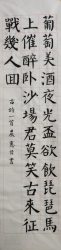 葡萄美酒夜光盃欲飲琵琶馬
上催醉卧沙場君莫笑古來征
戰幾人回